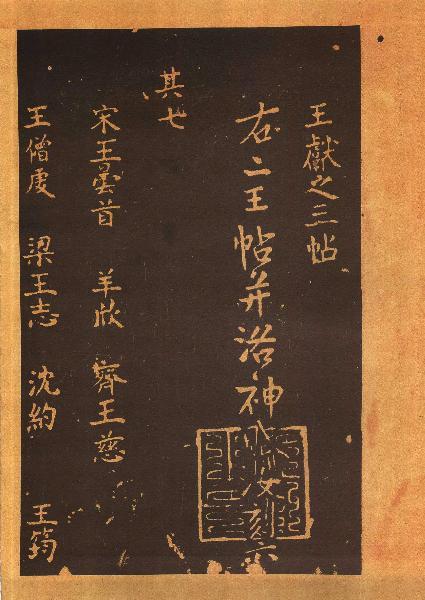 王獻之三帖
右二王帖并洛神
其七
宋王曇首 羊欣 齊王慈
王僧虔 梁王志 沈約 王筠